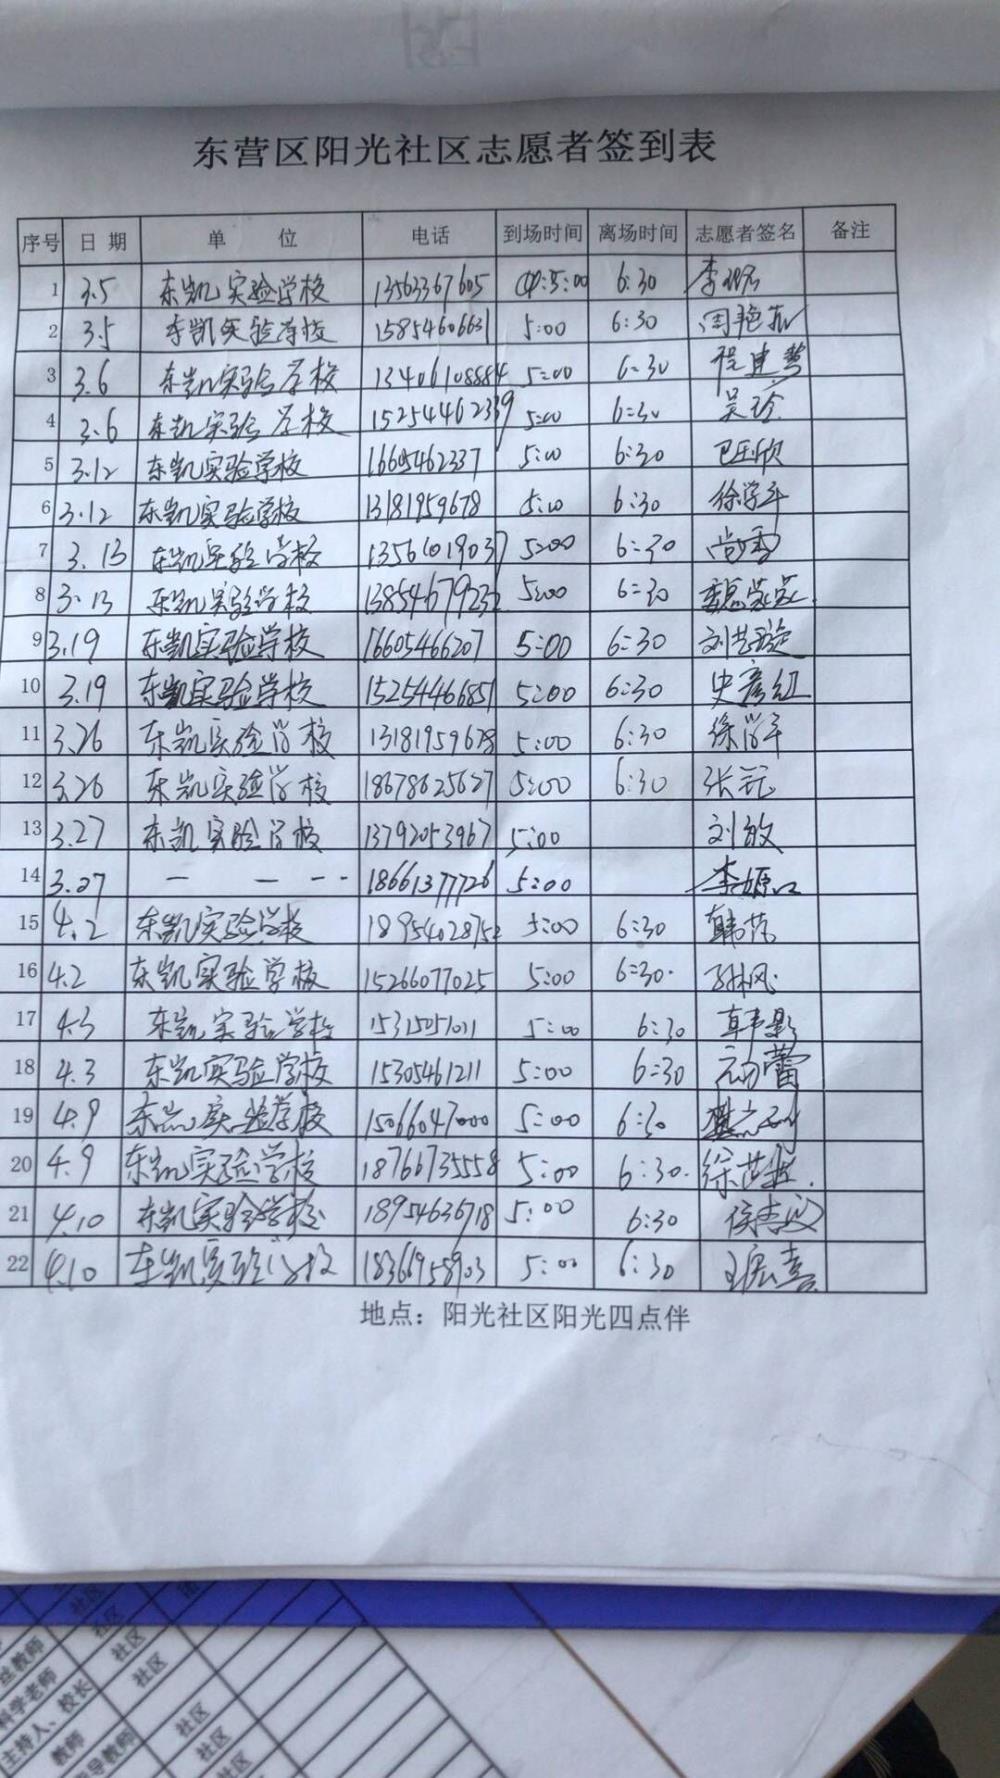 东营区阳光社区志愿者签到表
序号 日期 单位 电话 到场时间 离场时间 志愿者签名 备注
1 3.5 东凯实验学校 13563367605 5:00 6:30 李
2 3.5 东凯实验学校 15854606631 5:00 6:30 周艳
3 3.6 东凯实验学校 13406108884 5:00 6:30 程建慧
4 3.6 东凯实验学校 15254462339 5:00 6:30 吴珍
5 3.12 东凯实验学校 16605462337 5:00 6:30 巴欣
6 3.12 东凯实验学校 13181959678 5:00 6:30 徐学军
7 3.13 东凯实验学校 13561019037 5:00 6:30 尚雪
8 3.13 东凯实验学校 13854679232 5:00 6:30
9 3.19 东凯实验学校 16605466207 5:00 6:30 刘
10 3.19 东凯实验学校 15254466851 5:00 6:30 史彦红
11 3.26 东凯实验学校 13181959678 5:00 6:30 徐学军
12 3.26 东凯实验学校 18678625627 5:00 6:30 张
13 3.27 东凯实验学校 13792053967 5:00 刘敏
14 3.27 — — -- 18661377726 5:00 李
15 4.2 东凯实验学校 18954028752 5:00 6:30 韩萍
16 4.2 东凯实验学校 15266077025 5:00 6:30 孙风
17 4.3 东凯实验学校 15315051011 5:00 6:30 韩影
18 4.3 东凯实验学校 15305461211 5:00 6:30 蕾
19 4.9 东凯实验学校 15066047000 5:00 6:30
20 4.9 东凯实验学校 18766735558 5:00 6:30 徐
21 4.10 东凯实验学校 18954636718 5:00 6:30 侯
22 4.10 东凯实验学校 18366958903 5:00 6:30 王
地点：阳光社区阳光四点伴
社区
社区
社区
社区
社区
社区
社区
教师
科学老师
主持人、校长
教师
导教师